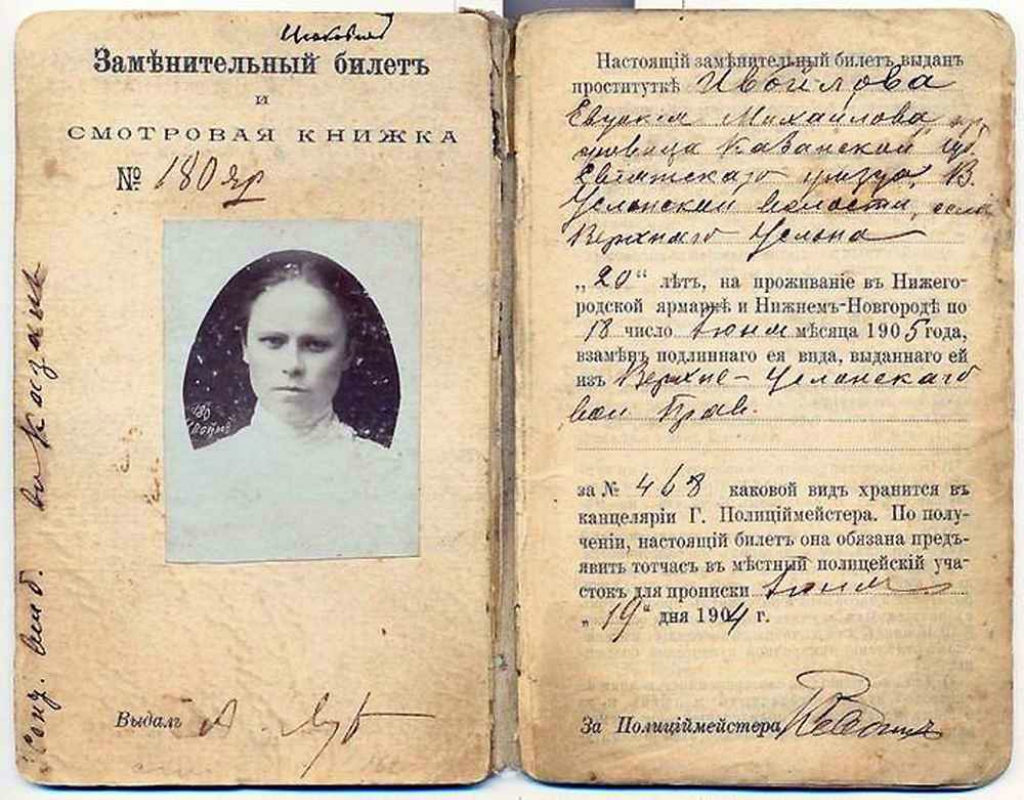 Замѣнительный билетъ
и
СМОТРОВАЯ КНИЖКА
№ 180 яр
180
Выдалъ А.
въ Казань
Настоящій замѣнительный билетъ выданъ
проституткѣ Ивойлова
Евдокия Михайлова
Казанской губ.
уезда, В.
Услонской волости, села
Верхнаго Услона
„20" лѣтъ, на проживаніе въ Нижего-
родской ярмаркѣ и Нижнемъ-Новгородѣ по
18 число Іюня мѣсяца 1905 года,
взамѣнъ подлиннаго ея вида, выданнаго ей
изъ Верхне-Услонскаго
вол Прав.
за № 468 каковой видъ хранится въ
канцеляріи Г. Полиціймейстера. По полу-
ченіи, настоящій билетъ она обязана предъ-
явить тотчасъ въ мѣстный полицейскій уча-
стокъ для прописки Іюня
„19" дня 1904 г.
За Полиціймейстера